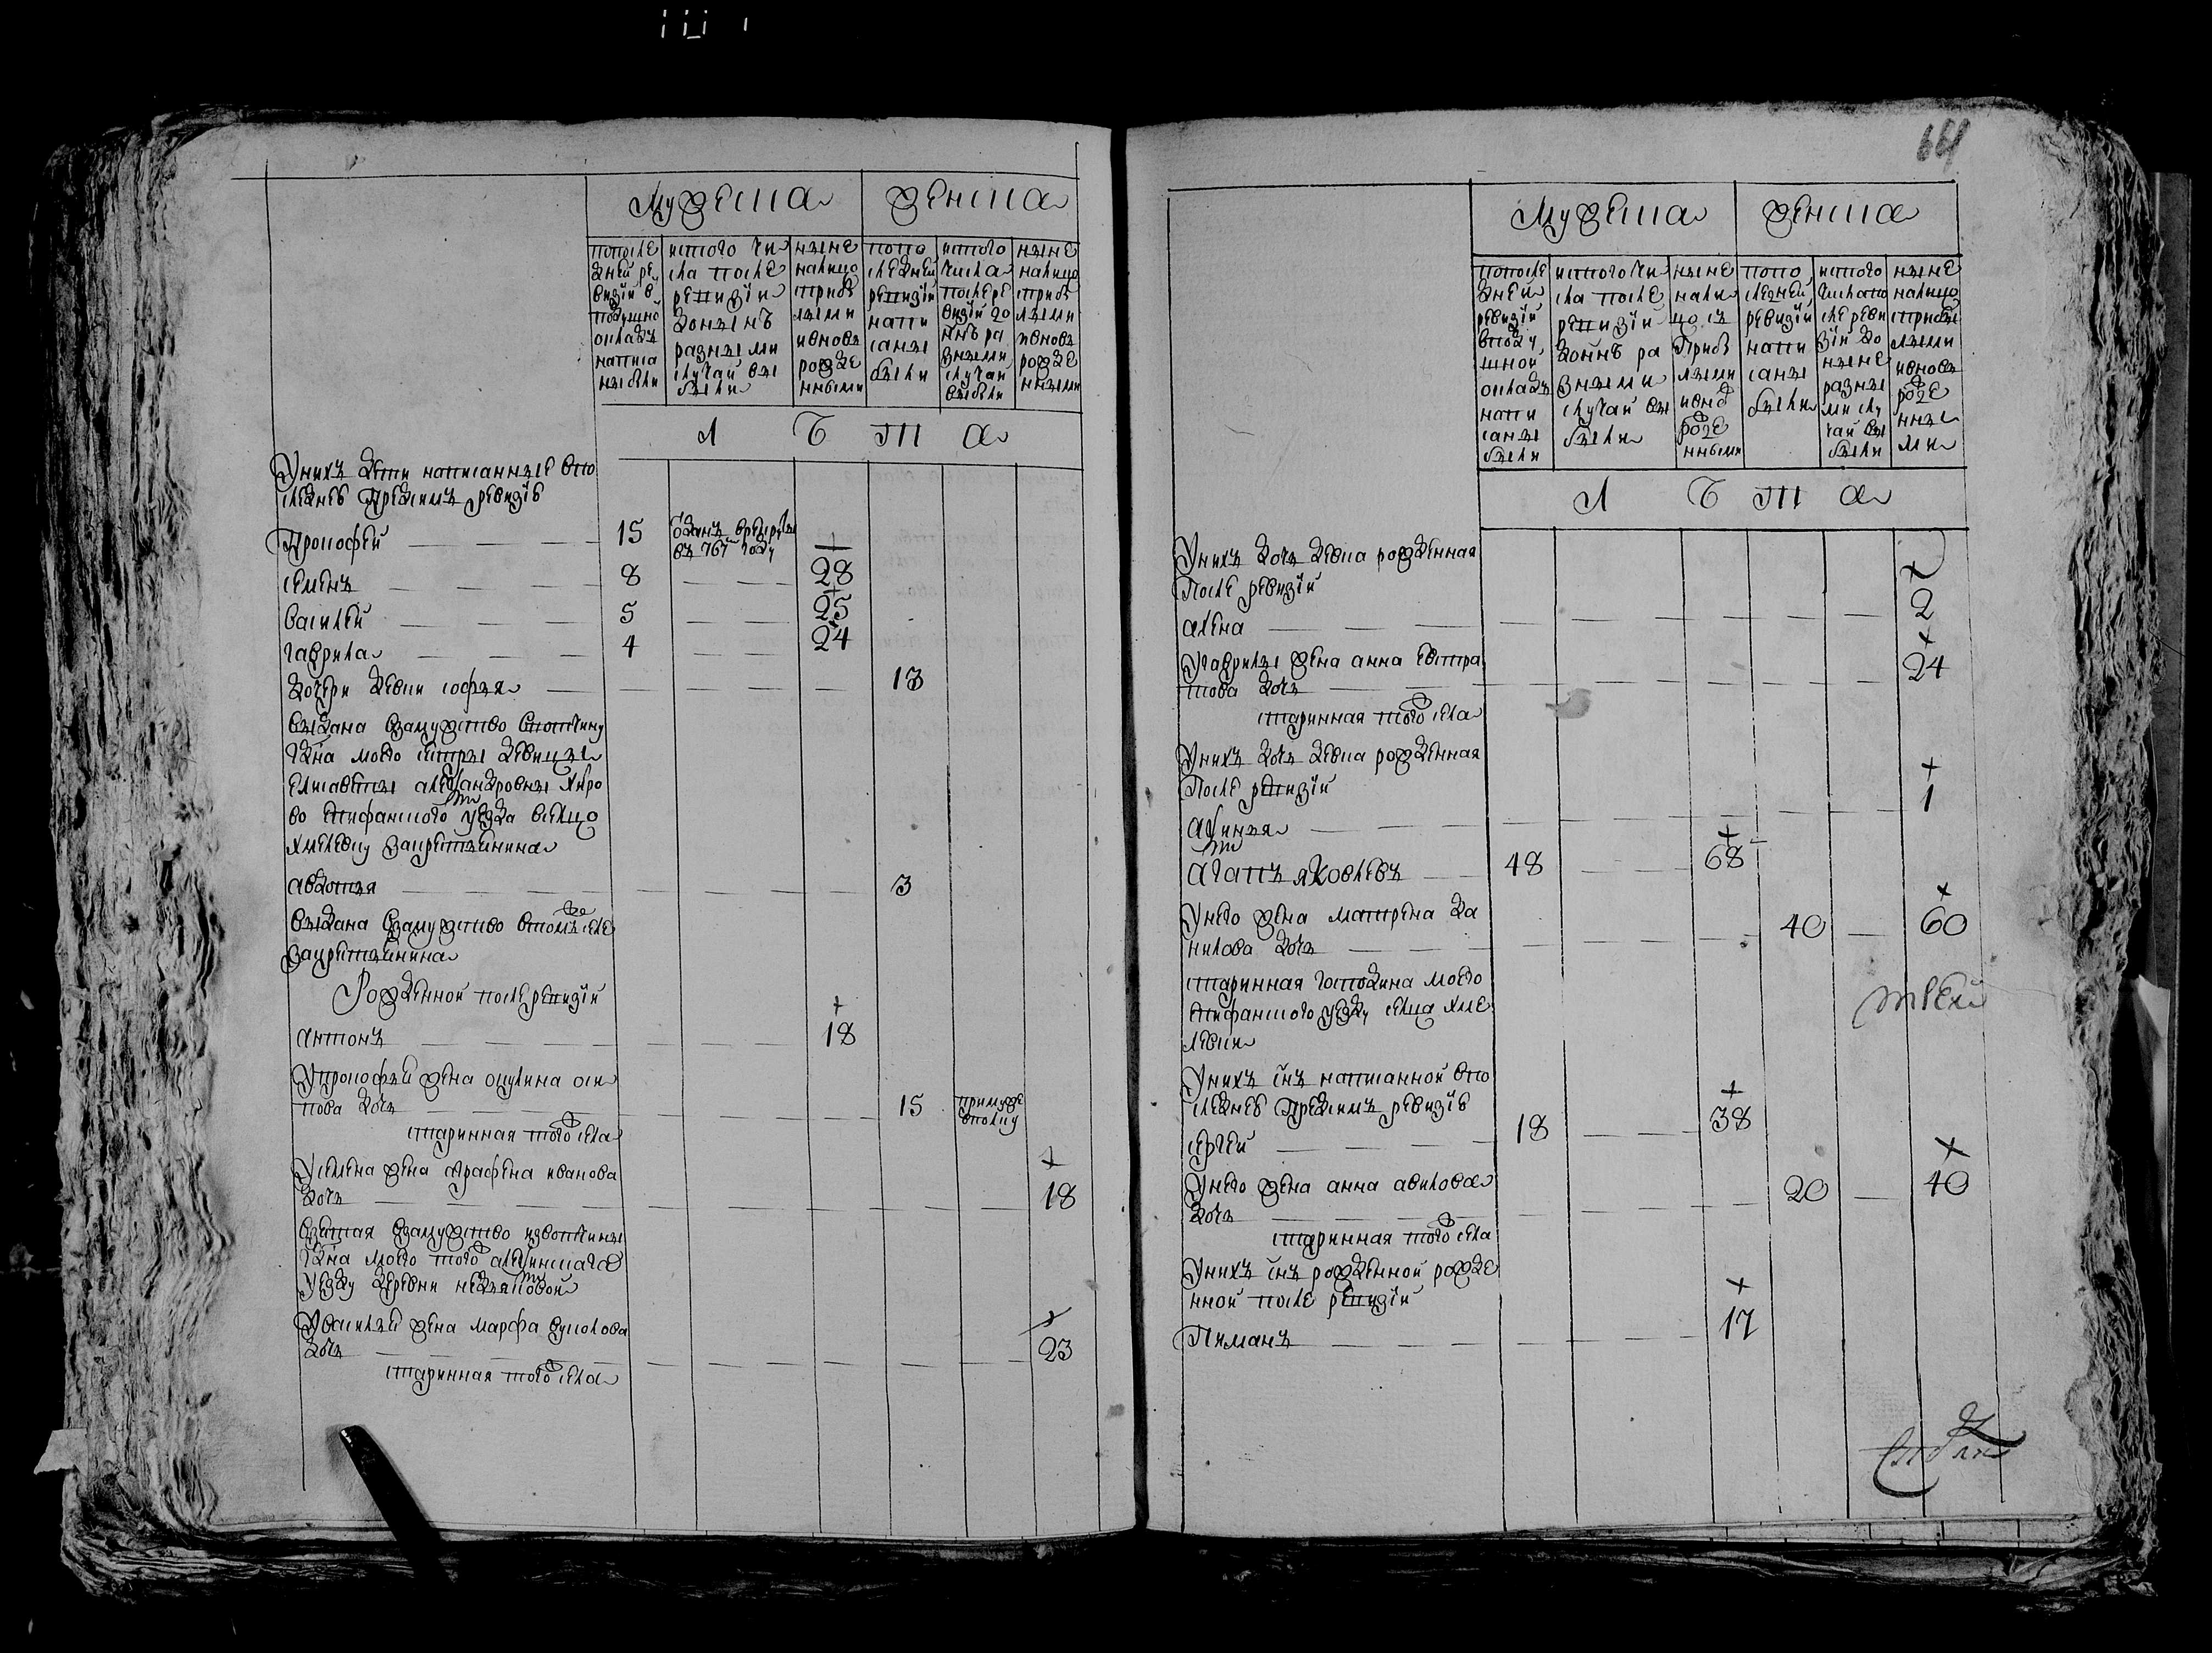 Мужеска женска
попосле
дней ре
визїи в
подушно
окладъ
написа
ны были
истого чи
сла после
ревизїи
доныне
разными
случаи вы
были
ныне
налицо
сприбы
лыми
ивновь
рожде
нными
попо
следней
ревизїи
напи
саны
были
истого
числа
послере
визїи до
не ра
зными
случаи
выбыли
ныне
налицо
сприбы
лыми
ивновь
рожде
нными
л ѣ т а
Унихъ дети написанные впо
следней предсимъ ревизїе
Прокофей 15 отданъ врекруты
въ 767 году
семенъ 8 28
василей 5 25
гаврила 4 24
дочери девки софья 13
выдана взамужство вотчину
гдна моего сестры девицы
елисаветы александровны хиро
во епифанского уезда всельцо
хмелевку закрестьянина
авдотья 3
выдана взамужство втомже селе
закрестьянина
Рожденной послеревизїи
антонъ 18
Упрокофья жена акулина оси
пова дочь 15 примужe
вполку
старинная того села
Усемена жена аграфена иванова
дочь 18
взятая взамужство извотчины
гдна моего того алексинскаго
уезду деревни
Увасилья жена марфа вуколова
дочь 23
старинная того села
64
Мужеска женска
попосле
дней
ревизїи
вподу
шной
окладъ
напи
саны
были
истого чи
сла после
ревизїи
доне ра
зными
случаи вы
были
ныне
нали
цо съ
прибы
лыми
ивно
рожде
нными
попо
следней
ревизїи
напи
саны
были
истого
числапо
сле реви
зїи до
ныне
разны
ми слу
чаи вы
были
ныне
налицо
сприбы
лыми
ивновь
рожде
нны
ми
л ѣ т а
Унихъ дочь девка рожденная
После ревизїи
алена 2
Угаврилы жена анна евстра
това дочь 24
старинная того села
Унихъ дочь девка рожденная
После ревизїи
аксинья 1
агапъ яковлевъ 48 68
Унего жена матрена да
нилова дочь 40 60
старинная господина моего
епифанского уезду сельца хме
левки
Унихъ снъ написанной впо
следней предсимъ ревизїе
сергей 18 38
Унего жена анна авилова
дочь 20 40
старинная того села
Унихъ снъ рожденной рожде
нной после ревизїи
Пиманъ 17